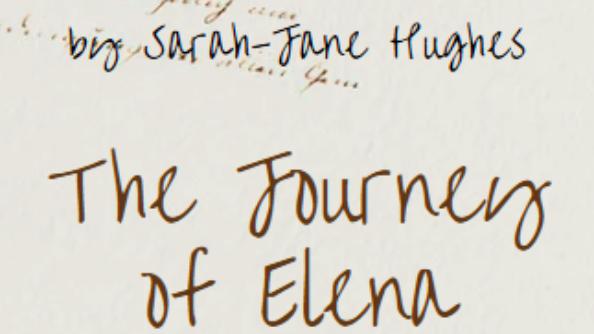 by Sarah-Jane Hughes
The Journey
of Elena